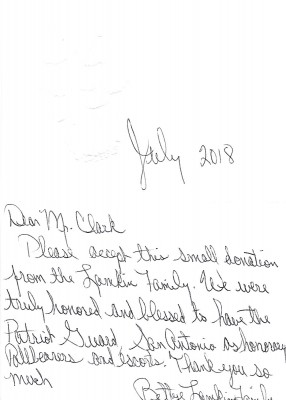 July 2018
Dear Mr. Clark
Please accept this small donation
from the Lamkin Family. We were
truly honored and blessed to have the
Patriot Guard, San Antonio as honorary
Pallbearers and escorts. Thank you so
much
Betty Lamkin & family